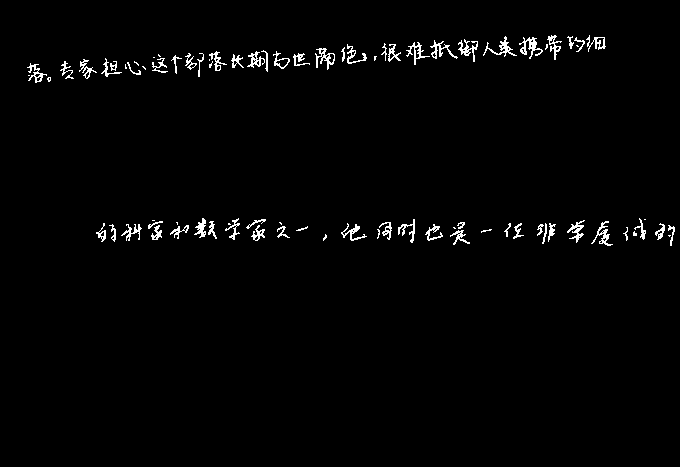 落。专家担心这个部落长期与世隔绝，很难抵御人类携带的细
的科家和数学家之一，他同时也是一位非常虔诚的